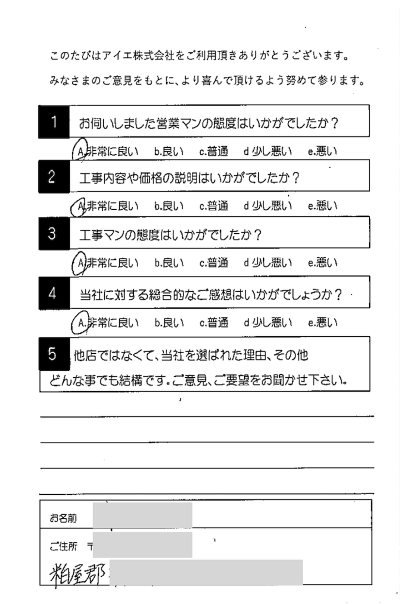 このたびはアイエ株式会社をご利用頂きありがとうございます。
みなさまのご意見をもとに、より喜んで頂けるよう努めて参ります。
1 お伺いしました営業マンの態度はいかがでしたか？
A.非常に良い b.良い c.普通 d少し悪い e.悪い
2 工事内容や価格の説明はいかがでしたか？
A.非常に良い b.良い c.普通 d少し悪い e.悪い
3 工事マンの態度はいかがでしたか？
A.非常に良い b.良い c.普通 d少し悪い e.悪い
4 当社に対する総合的なご感想はいかがでしょうか？
A.非常に良い b.良い c.普通 d少し悪い e.悪い
5 他店ではなくて、当社を選ばれた理由、その他
どんな事でも結構です。ご意見、ご要望をお聞かせ下さい。
お名前
ご住所 〒
粕屋郡